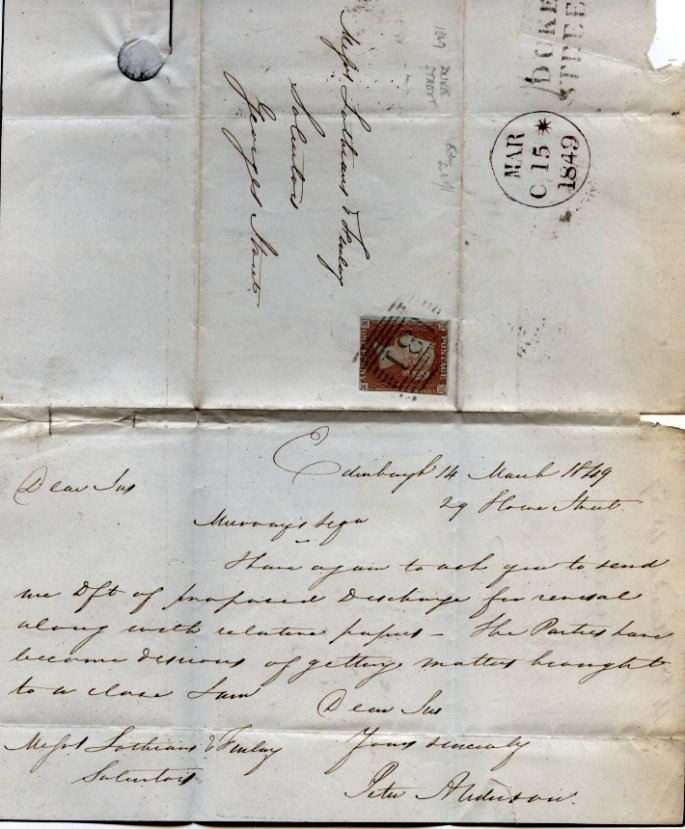 DUKE
STREET
MAR
C 15 *
1849
1849 DUKE
STREET
Messrs Lothians & Finlay
Solicitors
Georges Street
POSTAGE
81
Edinburgh 14 March 1849
29 Howe Street.
Dear Sirs
Murray's
I have again to ask you to send
me Dft of proposed Discharge for revisal
along with relative papers – The Parties have
become desirous of getting matters brought
to a close I am
Dear Sirs
Yours sincerely
Peter Anderson.
Messrs Lothians & Finlay
Solicitors